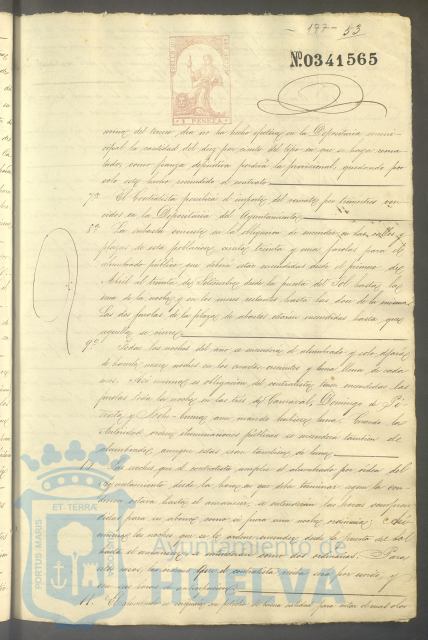 177 - 53
Nº 0341565
1 PESETA
mino del tercer dia no ha hecho efectiva en la Depositaria muni-
cipal la cantidad del diez por ciento del tipo en que se haya rema-
tado, como fianza definitiva perderá la provisional, quedando por
solo este hecho rescindido el contrato.
7ª El Contratista percibirá el importe del remate por trimestres ven-
cidos en la Depositaria del Ayuntamiento.
8ª La subasta consiste en la obligacion de encender en las calles y
plazas de esta poblacion, ciento treinta y una farolas para el
alumbrado público, que deberán estar encendidas desde el primero de
Abril al treinta de Setiembre desde la puesta del Sol hasta la
una de la noche, y en los meses restantes hasta las doce de la misma.
Las dos farolas de la plaza de abastos estarán encendidas hasta que
aquella se cierre.
9ª Todas las noches del año se encenderá el alumbrado y solo dejará
de hacerlo nueve noches en los cuartos crecientes y luna llena de cada
mes. Asi mismo es obligacion del contratista tener encendidas las
farolas toda la noche en los tres de Carnaval, Domingo de Pi-
ñata y Noche-buena, aun cuando hubiese luna. Cuando la
Autoridad ordene iluminaciones públicas se encenderá tambien el
alumbrado, aunque estas sean tambien de luna.
Las noches que el contratista amplie el alumbrado por orden del
Ayuntamiento desde la hora en que deba terminar segun la con-
dicion octava hasta el amanecer, se entenderán las horas compren-
didas para su abono como si fuera una noche ordinaria;
las noches que se le ordene encender desde la puesta del sol
hasta el amanecer, se como dos ordinarias. Para
11.
Ayuntamiento de
HUELVA
PORTUS MARIS ET TERRÆ